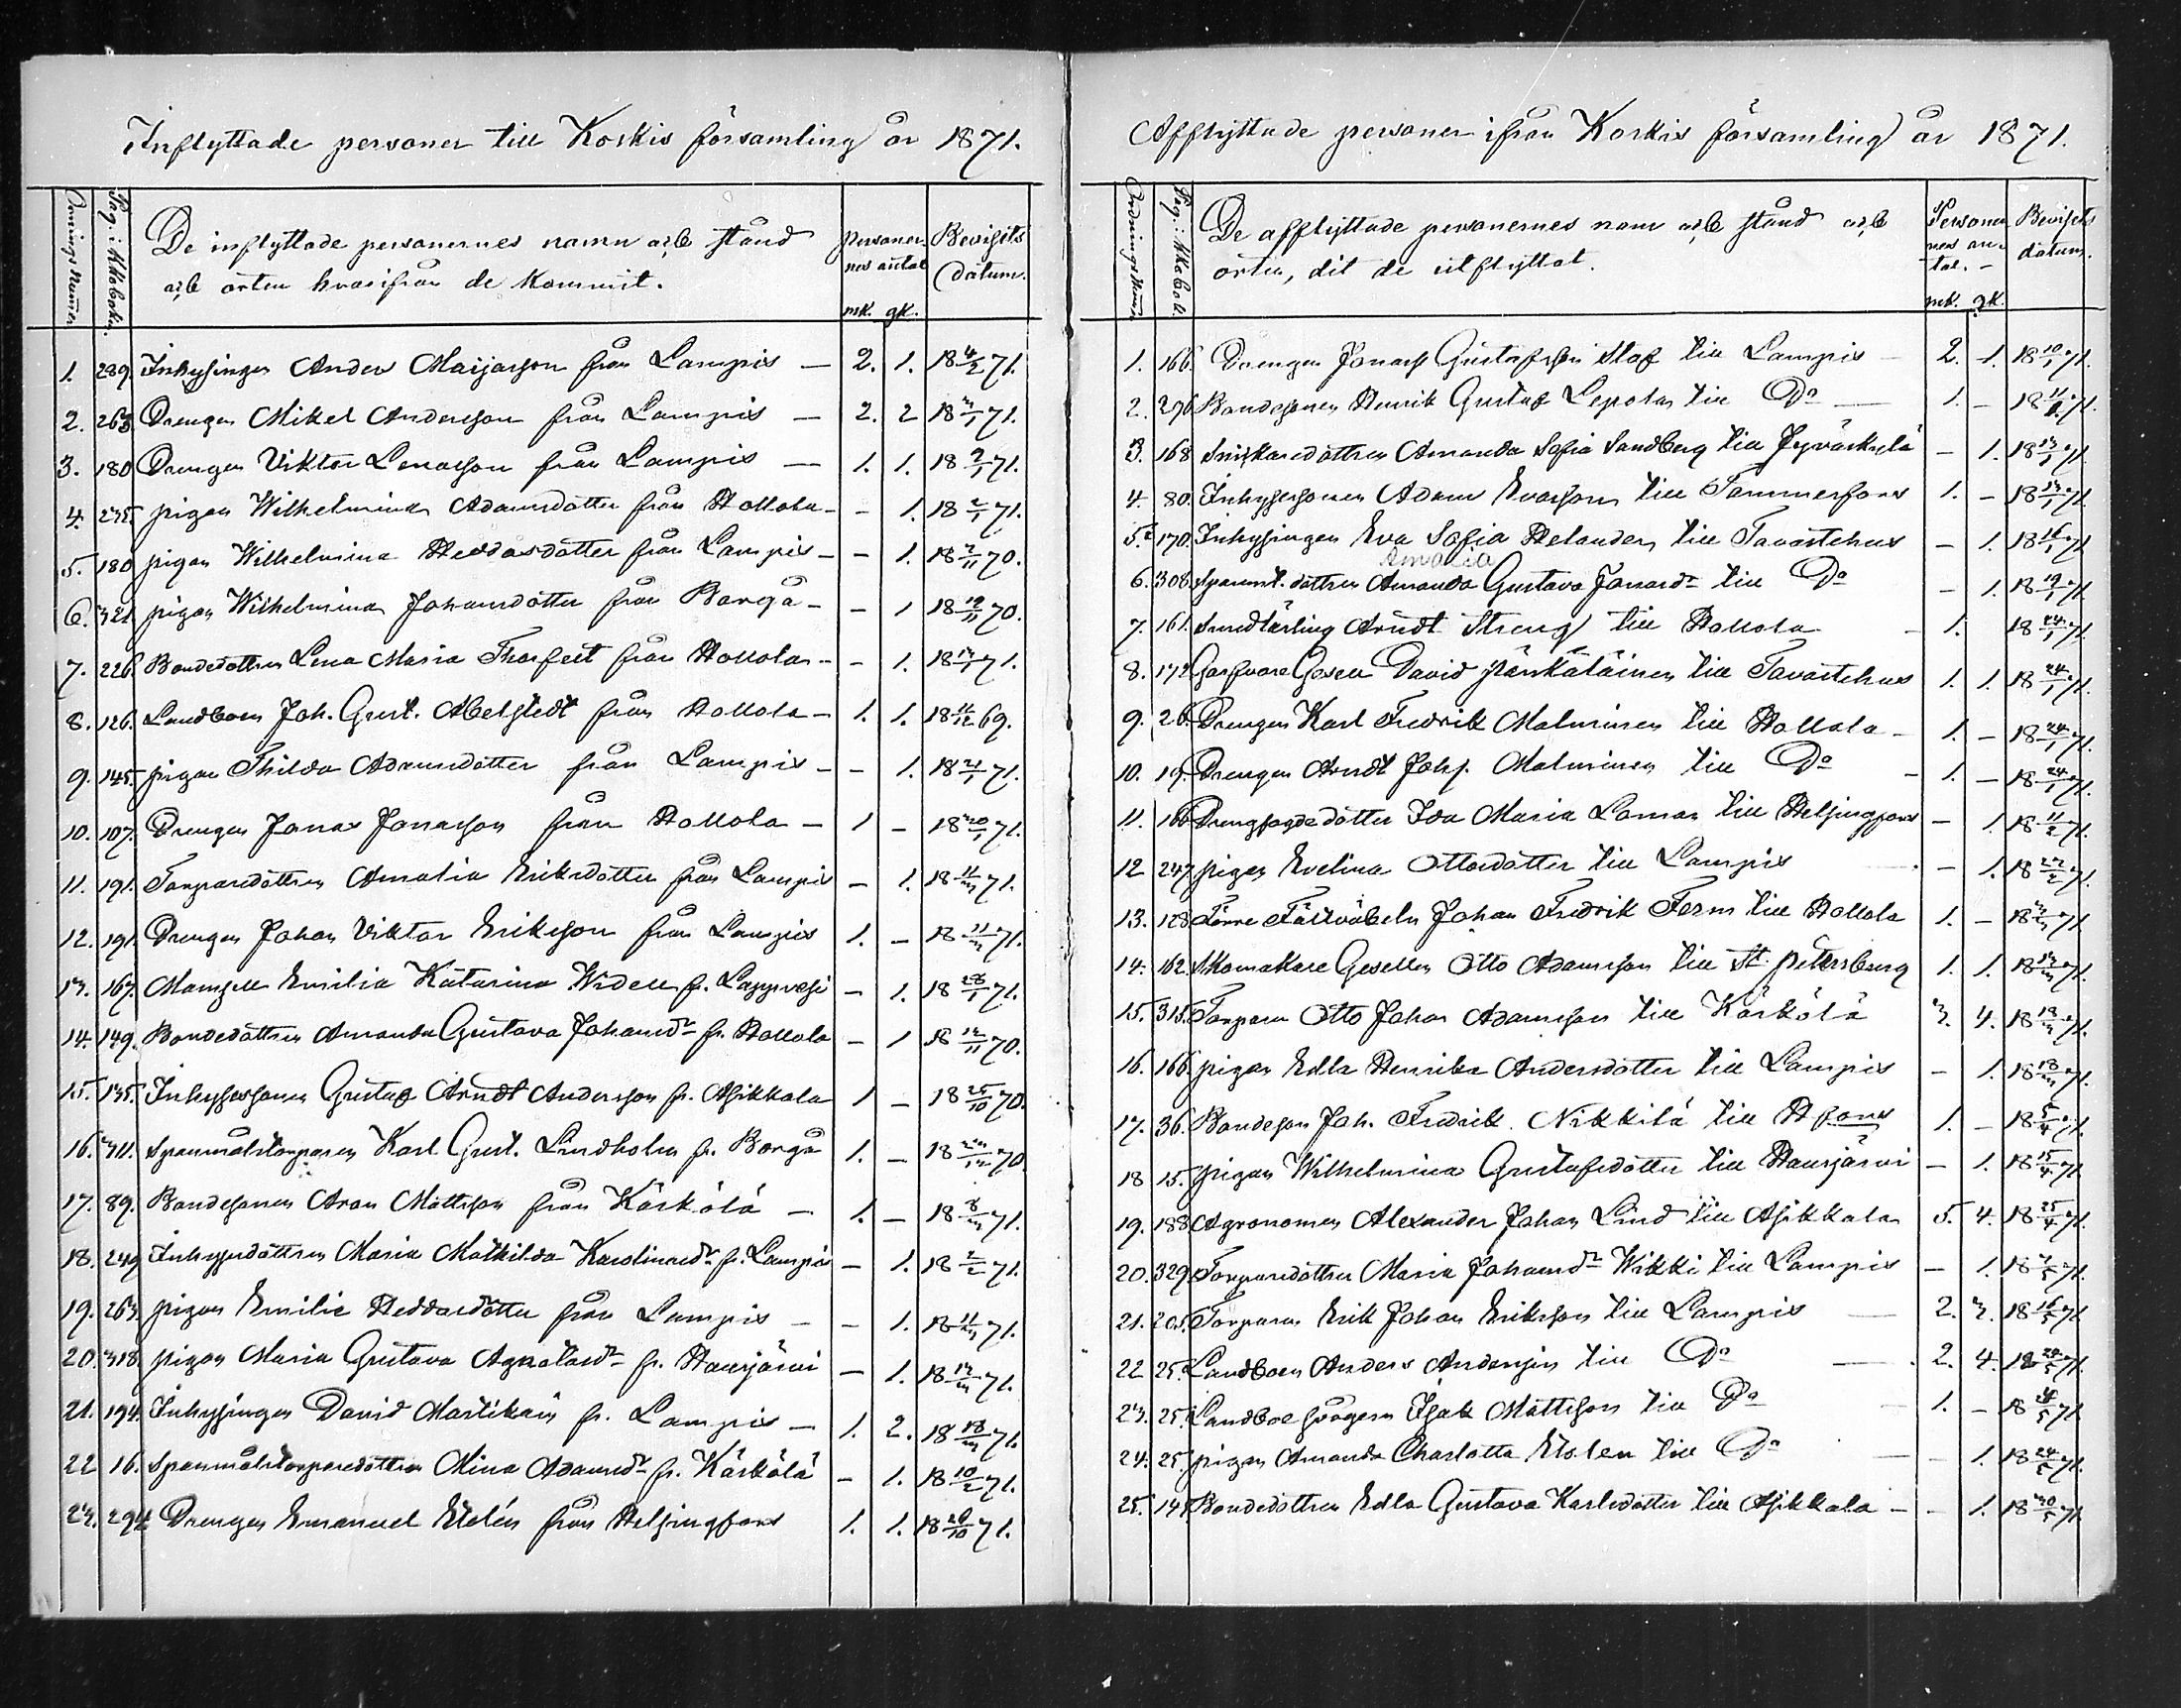 Inflyttade personer till Koskis församling år 1871.
Ordnings Numer
Pag. i Kkoboken.
De inflyttade personernes namn och stånd
och orten hvarifrån de kommit.
Personer-
nes antal
mk. qk.
Bevisets
datum.
1. 289. Inhysingen Anders Maijasson från Lampis — 2. 1. 18 4/2 71.
2. 263. Drengen Mikel Andersson från Lampis — 2. 2 18 3/1 71.
3. 180 Drengen Viktor Lenasson från Lampis — 1. 1. 18 2/1 71.
4. 235. pigan Wilhelmina Adamsdotter från Hollola - - 1. 18 2/1 71.
5. 180 pigan Wilhelmina Heddasdotter från Lampis - - 1. 18 7/11 70.
6. 321 pigan Wilhelmina Johansdotter från Borgå - - 1 18 19/11 70.
7. 226. Bondedottren Lena Maria Thorfelt från Hollola - - 1. 18 13/1 71.
8. 126. Landboen Joh. Gust. Abelstedt från Hollola - 1. 1. 18 11/12 69.
9. 145. pigan Thilda Adamsdotter från Lampis - - 1. 18 21/1 71.
10. 107. Drengen Jonas Jonasson från Hollola - 1 - 18 30/1 71.
11. 191. Torparedottren Amalia Eriksdotter från Lampis - 1. 18 11/3 71.
12. 191. Drengen Johan Viktor Eriksson från Lampis 1. - 18 11/3 71.
13. 167. Mamsell Emilia Katarina Widell fr. Lappvesi - 1. 18 28/1 71.
14. 149. Bondedottren Amanda Gustava Johansdr fr. Hollola - 1 18 12/11 70.
15. 135. Inhysessonen Gustaf Arndt Andersson fr. Asikkala 1 - 18 25/10 70.
16. 311. Spanmålstorparen Karl Gust. Lindholm fr. Borgå 1. - 18 23/12 70.
17. 89. Bondesonen Aron Mattsson från Kärkölä - 1. - 18 8/3 71.
18. 249 Inhysedottren Maria Mathilda Karolinasdr fr. Lampis - 1. 18 2/2 71.
19. 263. pigan Emilie Heddasdotter från Lampis - - 1. 18 11/3 71.
20. 318. pigan Maria Gustava Agatasdr fr. Hausjärvi - 1. 18 13/3 71.
21. 194. Inhysingen David Martikain fr. Lampis - 1. 2. 18 18/3 71.
22 16. Spanmålstorparedottren Mina Adamsdr fr. Kärkölä - 1. 18 10/2 71.
23. 294 Drengen Emanuel Etelén från Helsingfors 1. 1. 18 26/10 71.
Afflyttade personer ifrån Koskis församling år 1871.
Ordnings Numer
Pag. i Kkobok.
De afflyttade personernes namn och stånd och
orten, dit de utflyttat.
Personer-
nes an-
tal. -
mk. qk.
Bevisets
datum.
1. 166. Drengen Jonas Gustafsson Staf till Lampis - 2. 1. 18 10/1 71.
2. 276 Bondesonen Henrik Gustaf Lepola till Do — 1. - 18 11/1 71.
3. 168 Snickaredottren Amanda Sofia Sandberg till Jyväskylä - 1. 18 13/1 71.
4. 80. Inhysesonen Adam Evasson till Tammerfors 1. - 18 13/1 71.
5. 170. Inhysingen Eva Sofia Helander till Tavastehus - 1. 18 16/1 71
Amalia
6. 308 Spanmt. dottren Amanda Gustava Jonasdr till Do - 1. 18 19/1 71.
7. 161. Smedlärling Arndt Streng till Hollola - 1. 18 24/1 71.
8. 172 Garfvare Gesell David Pänkäläinen till Tavastehus 1. 1. 18 24/1 71.
9. 26. Drengen Karl Fredrik Malminen till Hollola - 1. - 18 24/1 71.
10. 19. Drengen Arndt Johs. Malminen till Do - 1. - 18 24/1 71.
11. 166 Drengfogdedotter Ida Maria Loman till Helsingfors - 1. 18 11/2 71.
12 247 pigan Evelina Ottosdotter till Lampis - 1. 18 22/2 71.
13. 128 Förre Fältväbeln Johan Fredrik Ferm till Hollola 1. - 18 3/3 71.
14. 162. Skomakare Gesellen Otto Adamsson till St. Petersburg 1. 1. 18 13/3 71.
15. 315. Torparen Otto Johan Adamsson till Kärkölä 3. 4. 18 18/3 71.
16. 166 pigan Edla Henrika Andersdotter till Lampis - 1. 18 18/3 71.
17. 36. Bondeson Joh. Fredrik Nikkilä till Hfors 1. - 18 5/4 71.
18 15. pigan Wilhelmina Gustafsdotter till Hausjärvi - 1. 18 15/4 71.
19. 188 Agronomen Alexander Johan Lind till Asikkala 5. 4. 18 25/4 71.
20. 329 Torparedottren Maria Johansdr Wikki till Lampis - 1. 18 7/5 71.
21. 205. Torparen Erik Johan Eriksson till Lampis — 2. 3. 18 16/5 71.
22 25. Landboen Anders Andersin till Do — 2. 4. 18 24/5 71.
23. 25. Landboe svågern Isak Mattsson till Do - 1. - 18 24/5 71.
24. 25. pigan Amanda Charlotta Etolen till Do — - 1. 18 24/5 71.
25. 145 Bondedottren Edla Gustava Karlsdotter till Asikkala - - 1. 18 30/5 71.